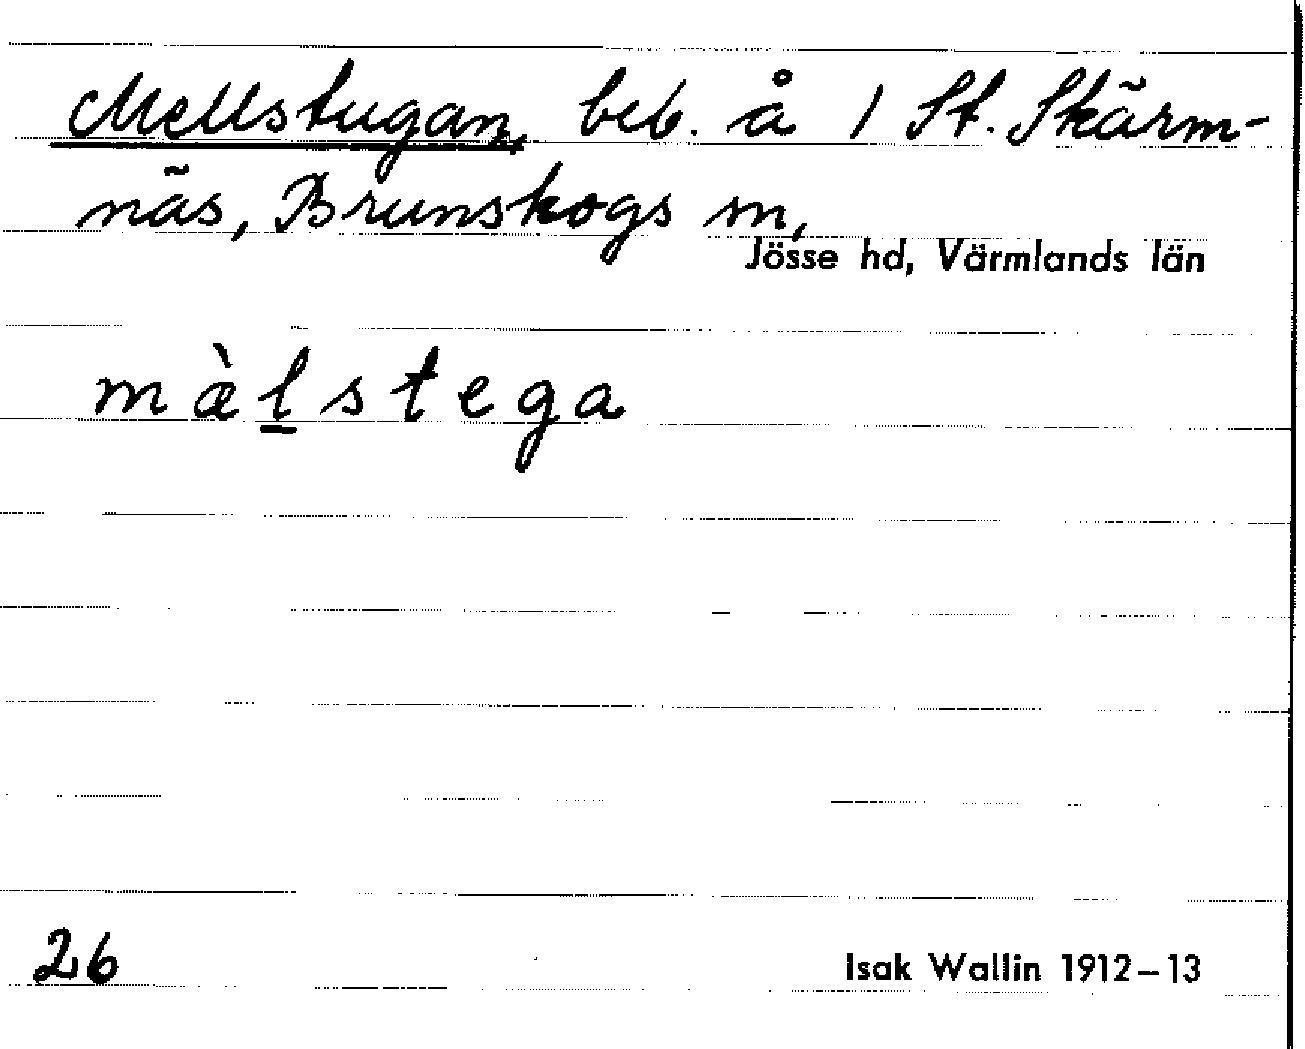 Mellstugan, beb. å 1 St. Skärm-
näs, Brunskogs sn,
Jösse hd, Värmlands län
mæ̀l̲stega
26
Isak Wallin 1912–13